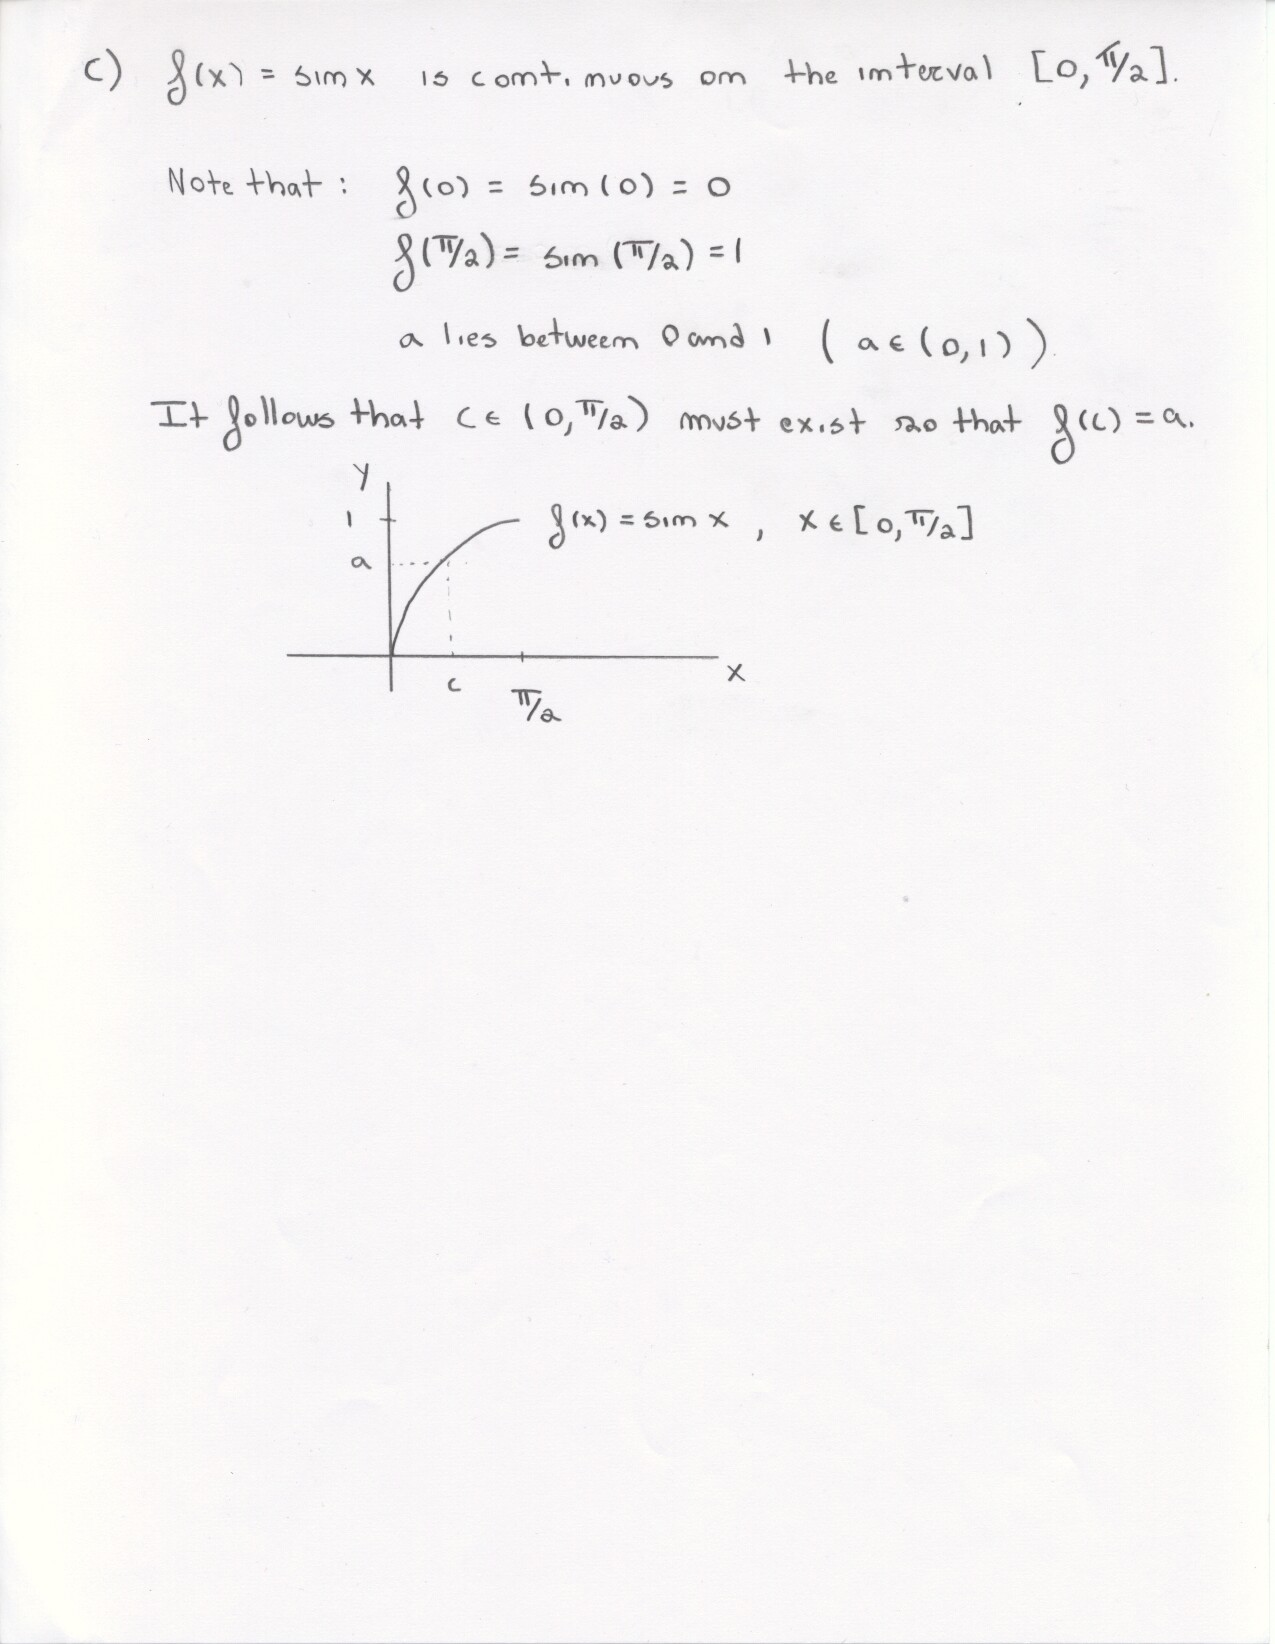 c) f(x) = sin x is continuous on the interval [0, π/2].
Note that: f(0) = sin(0) = 0
f(π/2) = sin (π/2) = 1
a lies between 0 and 1 (a ∈ (0,1))
It follows that c ∈ (0, π/2) must exist so that f(c) = a.
y
1
f(x) = sin x , x ∈ [0, π/2]
a
x
c
π/2